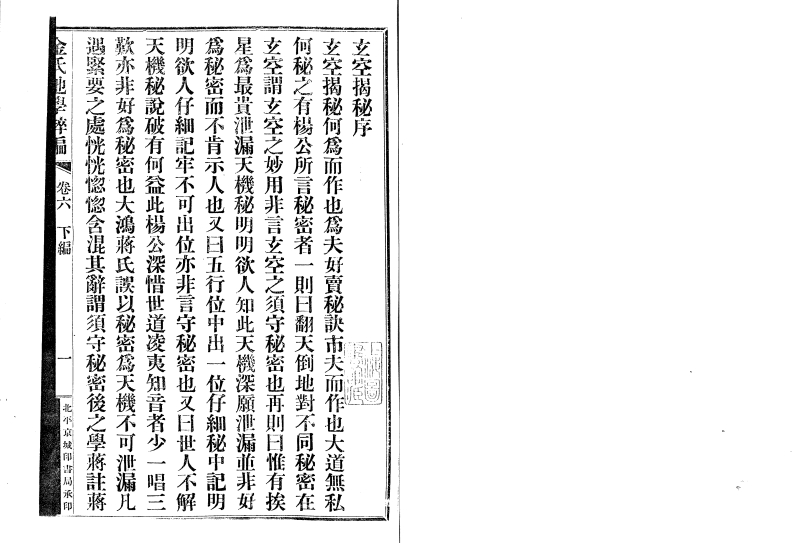 玄空揭秘序
玄空揭秘何爲而作也爲夫好賣秘訣市夫而作也大道無私
何秘之有楊公所言秘密者一則曰翻天倒地對不同秘密在
玄空謂玄空之妙用非言玄空之須守秘密也再則曰惟有挨
星爲最貴泄漏天機秘明明欲人知此天機深願泄漏並非好
爲秘密而不肯示人也又曰五行位中出一位仔細秘中記明
明欲人仔細記牢不可出位亦非言守秘密也又曰世人不解
天機秘說破有何益此楊公深惜世道凌夷知音者少一唱三
歎亦非好爲秘密也大鴻蔣氏誤以秘密爲天機不可泄漏凡
遇緊要之處恍恍惚惚含混其辭謂須守秘密後之學蔣註蔣
金氏地學粹編
卷六
下編
一
北平京城印書局承印